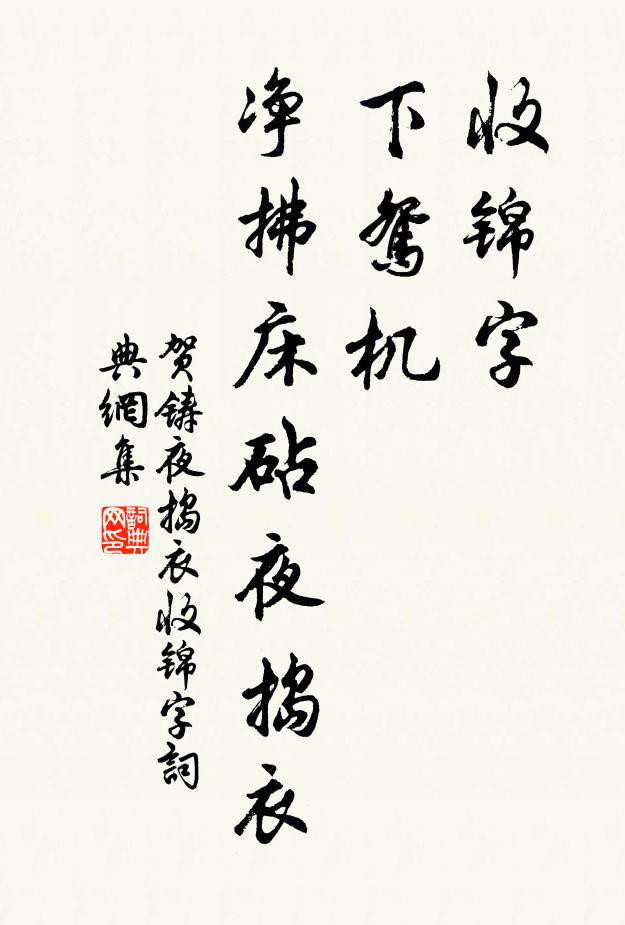 收锦字
下鸳机
净拂床砧夜捣衣
贺铸夜捣衣收锦字詞
典網集
詞典
网印